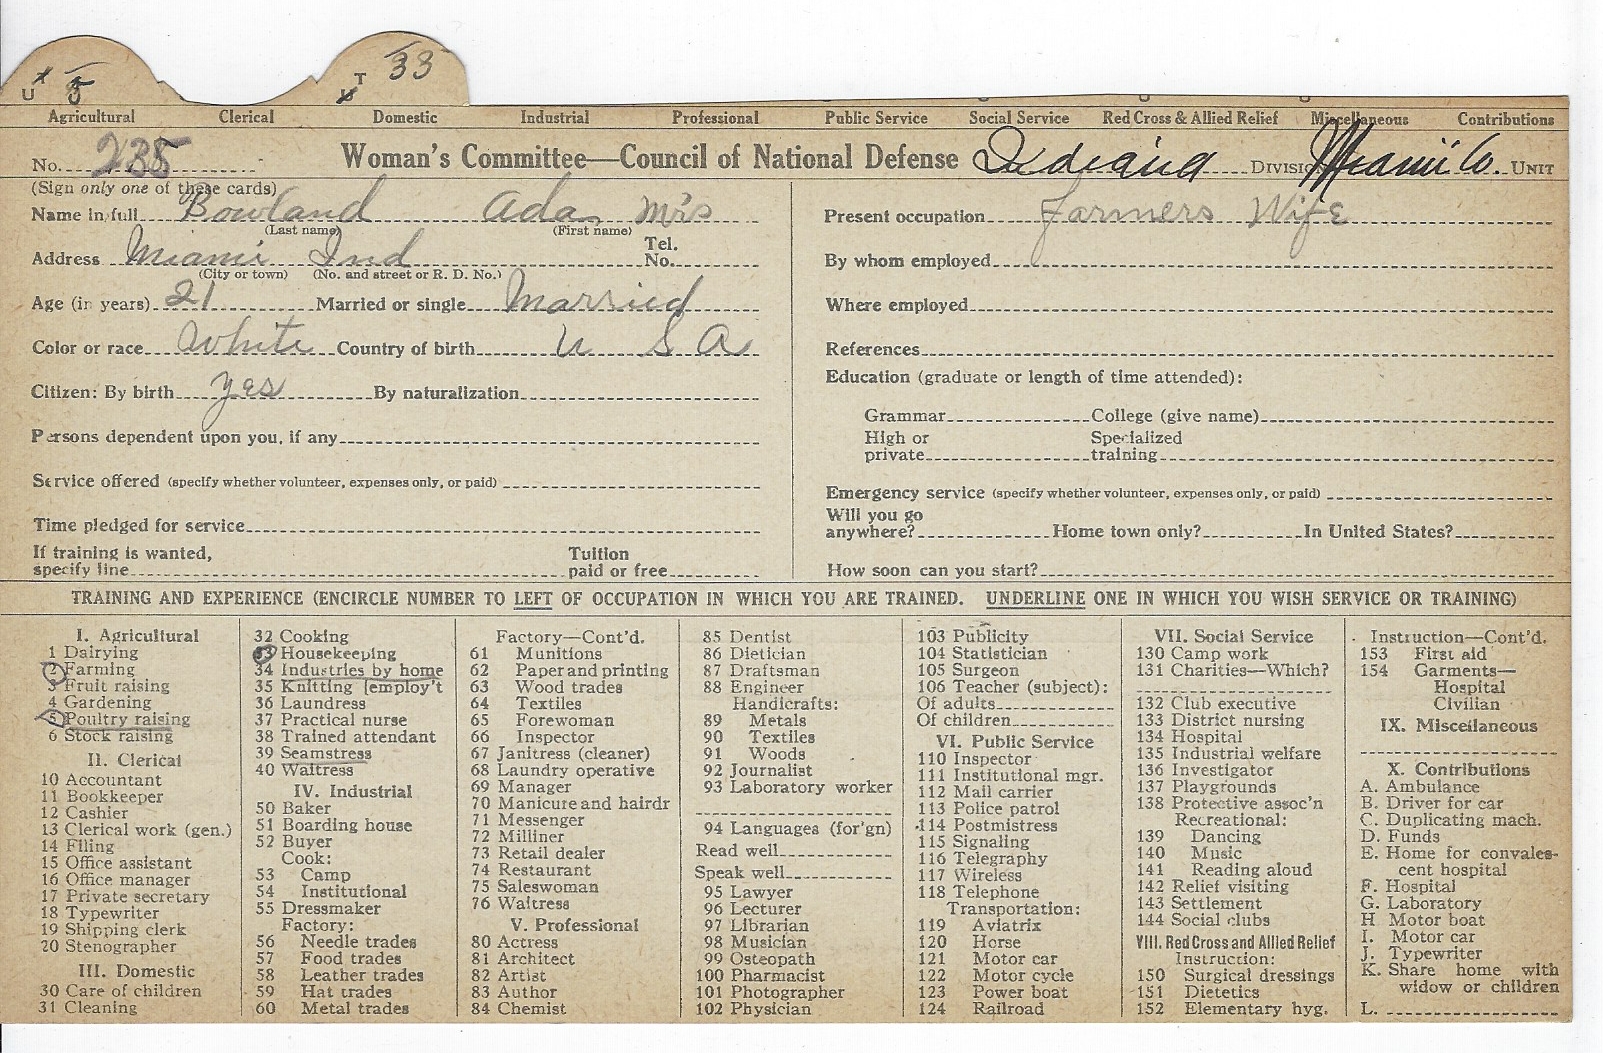 U 5 T 33
Agricultural Clerical Domestic Industrial Professional Public Service Social Service Red Cross & Allied Relief Miscellaneous Contributions
No. 235 Woman's Committee—Council of National Defense Indiana DIVISION Miami Co. UNIT
(Sign only one of these cards)
Name in full Bowland Ada Mrs
(Last name) (First name)
Address Miami Ind Tel. No.
(City or town) (No. and street or R. D. No.)
Age (in years) 21 Married or single Married
Color or race White Country of birth U S A
Citizen: By birth yes By naturalization
Persons dependent upon you, if any
Service offered (specify whether volunteer, expenses only, or paid)
Time pledged for service
If training is wanted,
specify line Tuition paid or free
Present occupation farmers Wife
By whom employed
Where employed
References
Education (graduate or length of time attended):
Grammar College (give name)
High or private Specialized training
Emergency service (specify whether volunteer, expenses only, or paid)
Will you go anywhere? Home town only? In United States?
How soon can you start?
TRAINING AND EXPERIENCE (ENCIRCLE NUMBER TO LEFT OF OCCUPATION IN WHICH YOU ARE TRAINED. UNDERLINE ONE IN WHICH YOU WISH SERVICE OR TRAINING)
I. Agricultural
1 Dairying
2 Farming
3 Fruit raising
4 Gardening
5 Poultry raising
6 Stock raising
II. Clerical
10 Accountant
11 Bookkeeper
12 Cashier
13 Clerical work (gen.)
14 Filing
15 Office assistant
16 Office manager
17 Private secretary
18 Typewriter
19 Shipping clerk
20 Stenographer
III. Domestic
30 Care of children
31 Cleaning
32 Cooking
33 Housekeeping
34 Industries by home
35 Knitting [employ't
36 Laundress
37 Practical nurse
38 Trained attendant
39 Seamstress
40 Waitress
IV. Industrial
50 Baker
51 Boarding house
52 Buyer
Cook:
53 Camp
54 Institutional
55 Dressmaker
Factory:
56 Needle trades
57 Food trades
58 Leather trades
59 Hat trades
60 Metal trades
Factory—Cont'd.
61 Munitions
62 Paper and printing
63 Wood trades
64 Textiles
65 Forewoman
66 Inspector
67 Janitress (cleaner)
68 Laundry operative
69 Manager
70 Manicure and hairdr
71 Messenger
72 Milliner
73 Retail dealer
74 Restaurant
75 Saleswoman
76 Waitress
V. Professional
80 Actress
81 Architect
82 Artist
83 Author
84 Chemist
85 Dentist
86 Dietician
87 Draftsman
88 Engineer
Handicrafts:
89 Metals
90 Textiles
91 Woods
92 Journalist
93 Laboratory worker
94 Languages (for'gn)
Read well
Speak well
95 Lawyer
96 Lecturer
97 Librarian
98 Musician
99 Osteopath
100 Pharmacist
101 Photographer
102 Physician
103 Publicity
104 Statistician
105 Surgeon
106 Teacher (subject):
Of adults
Of children
VI. Public Service
110 Inspector
111 Institutional mgr.
112 Mail carrier
113 Police patrol
114 Postmistress
115 Signaling
116 Telegraphy
117 Wireless
118 Telephone
Transportation:
119 Aviatrix
120 Horse
121 Motor car
122 Motor cycle
123 Power boat
124 Railroad
VII. Social Service
130 Camp work
131 Charities—Which?
132 Club executive
133 District nursing
134 Hospital
135 Industrial welfare
136 Investigator
137 Playgrounds
138 Protective assoc'n
Recreational:
139 Dancing
140 Music
141 Reading aloud
142 Relief visiting
143 Settlement
144 Social clubs
VIII. Red Cross and Allied Relief
Instruction:
150 Surgical dressings
151 Dietetics
152 Elementary hyg.
Instruction—Cont'd.
153 First aid
154 Garments—
Hospital
Civilian
IX. Miscellaneous
X. Contributions
A. Ambulance
B. Driver for car
C. Duplicating mach.
D. Funds
E. Home for convales-
cent hospital
F. Hospital
G. Laboratory
H Motor boat
I. Motor car
J. Typewriter
K. Share home with
widow or children
L.